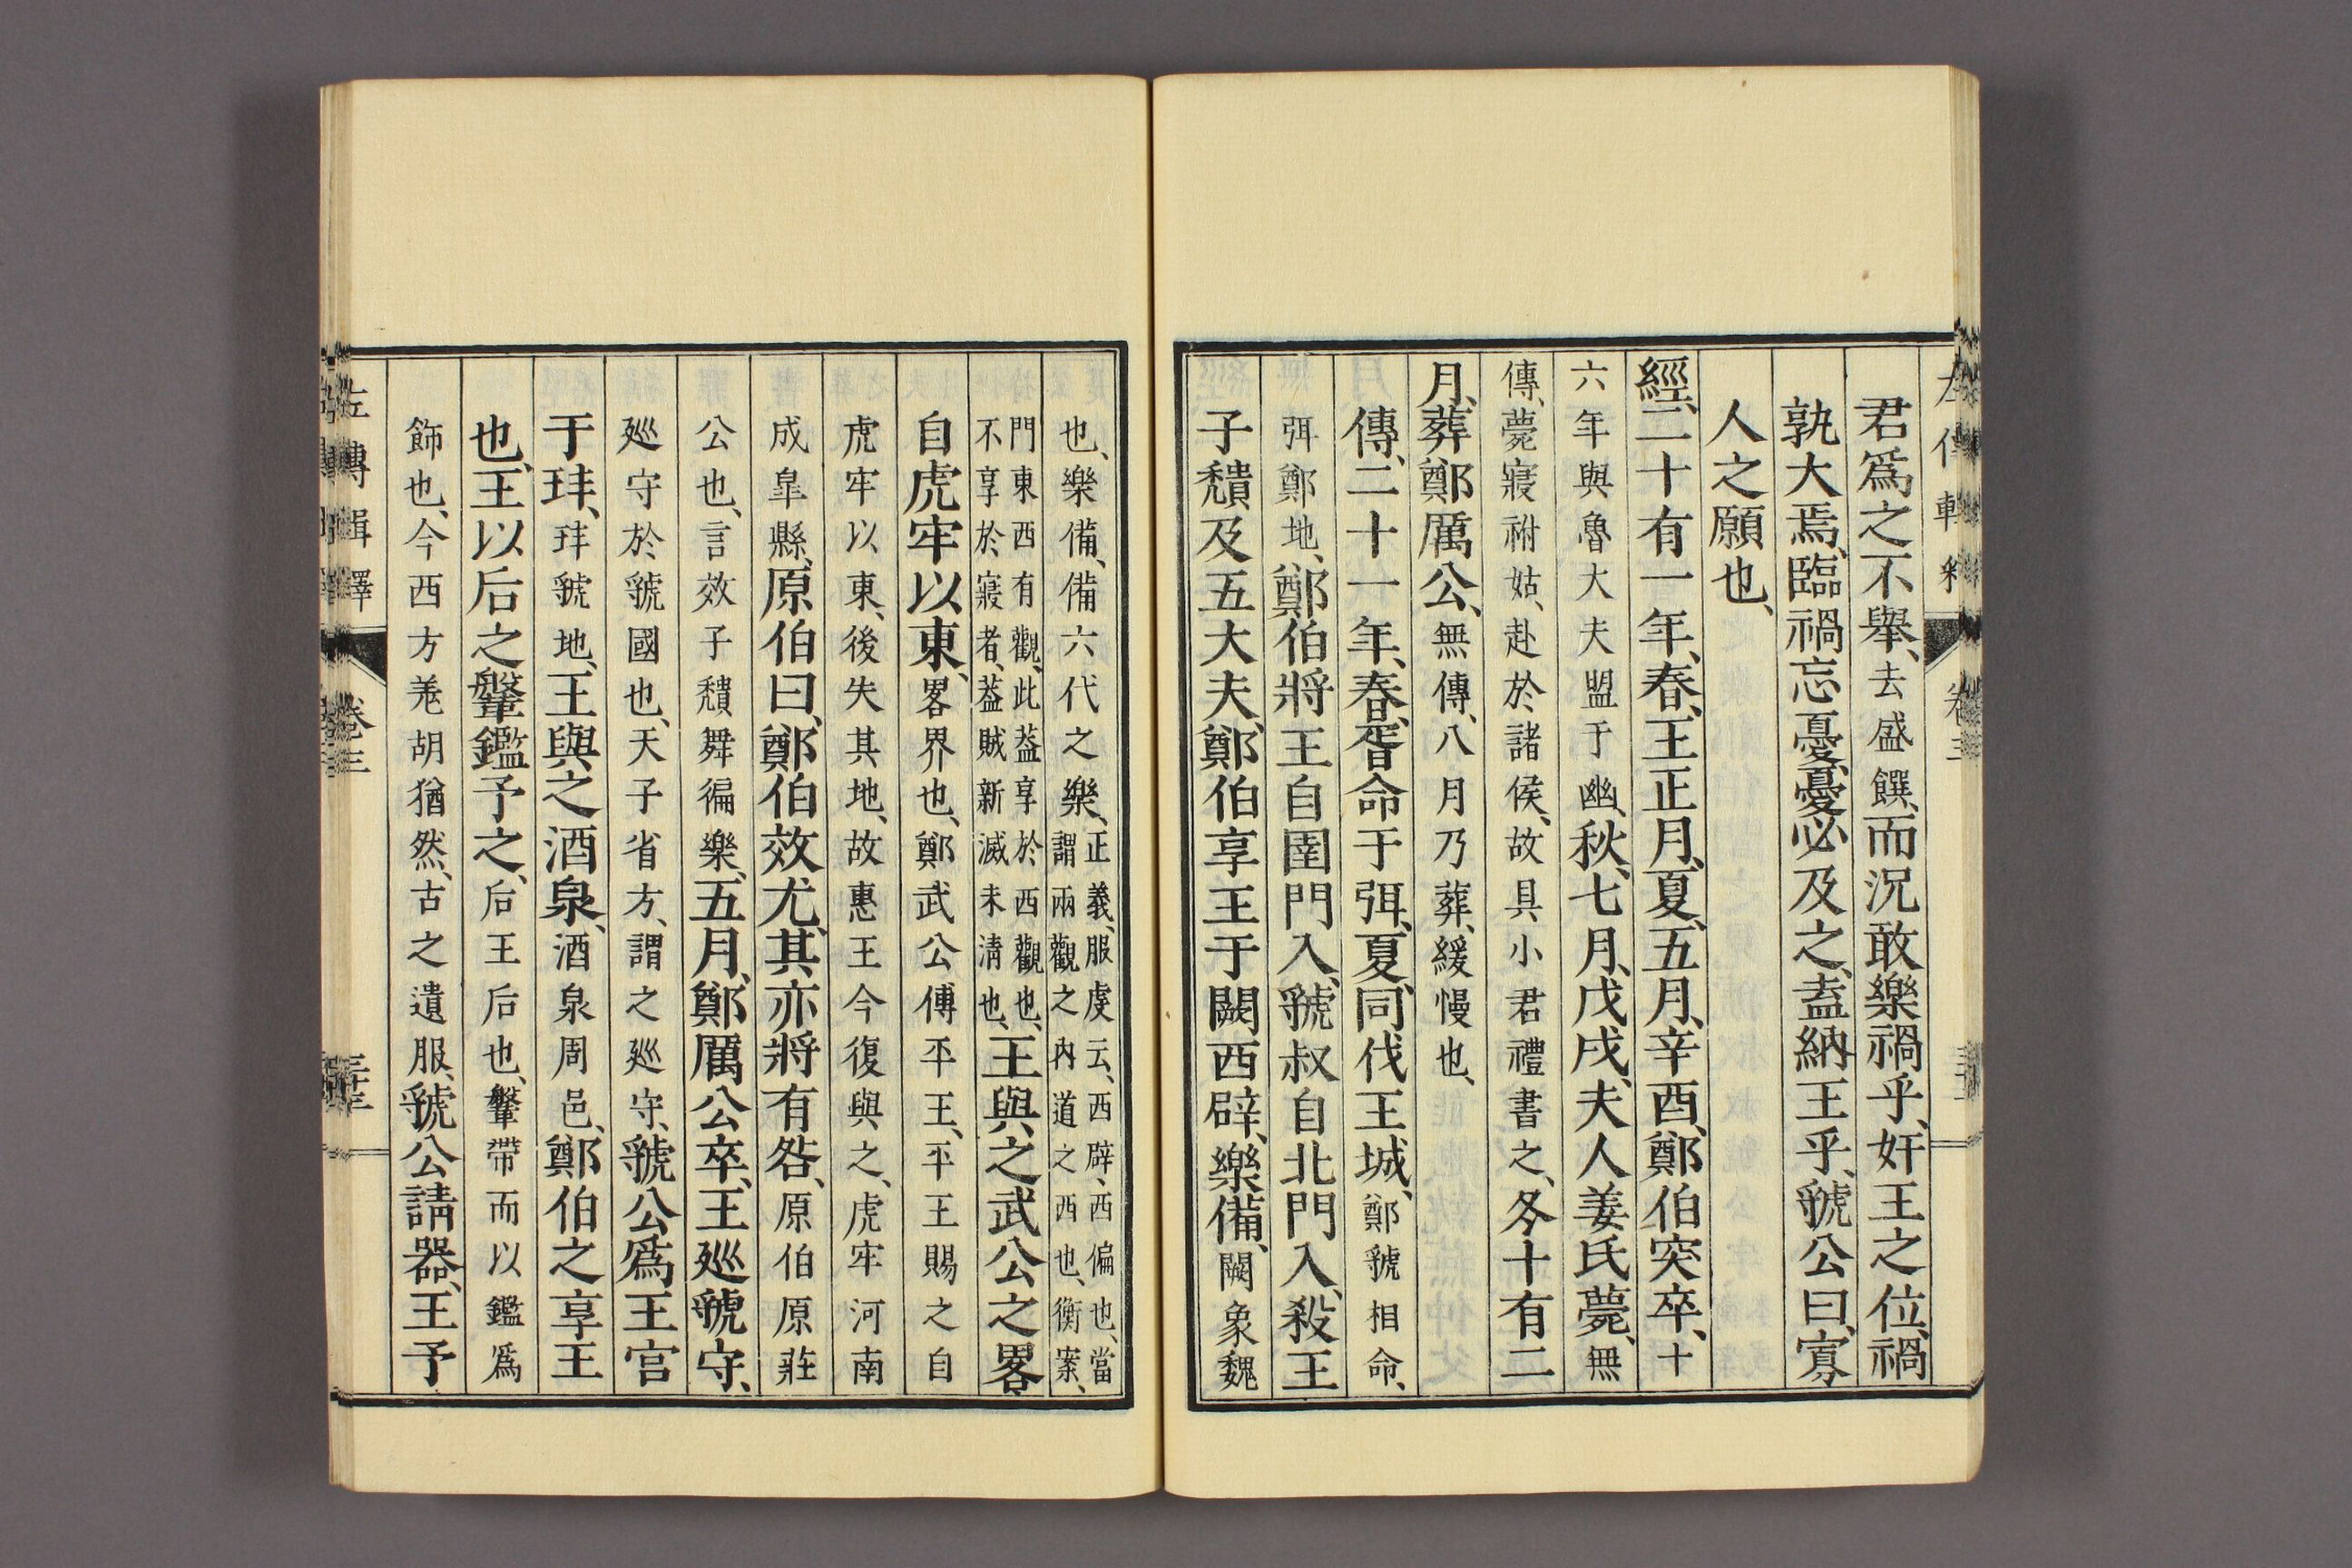 君爲之不舉、去盛饌、而況敢樂禍乎、奸王之位、禍
孰大焉、臨禍忘憂、憂必及之、盍納王乎、虢公曰、寡
人之願也、
經、二十有一年、春、王正月、夏、五月、辛酉、鄭伯突卒、十
六年與魯大夫盟于幽、秋、七月、戊戌、夫人姜氏薨、無
傳、薨寢祔姑、赴於諸侯、故具小君禮書之、冬、十有二
月、葬鄭厲公、無傳、八月乃葬、緩慢也、
傳、二十一年、春、胥命于弭、夏、同伐王城、鄭虢相命、
弭鄭地、鄭伯將王自圉門入、虢叔自北門入、殺王
子穨及五大夫、鄭伯享王于闕西辟、樂備、闕象魏
也、樂備、備六代之樂、正義、服虔云、西辟、西偏也、當
謂兩觀之內道之西也、衡案、
門東西有觀、此葢享於西觀也、
不享於寢者、葢賊新滅未淸也、王與之武公之畧
自虎牢以東、畧界也、鄭武公傅平王、平王賜之自
虎牢以東、後失其地、故惠王今復與之、虎牢河南
成皐縣、原伯曰、鄭伯效尤、其亦將有咎、原伯原莊
公也、言效子穨舞徧樂、五月、鄭厲公卒、王廵虢守、
廵守於虢國也、天子省方、謂之廵守、虢公爲王宮
于玤、玤虢地、王與之酒泉、酒泉周邑、鄭伯之享王
也、王以后之鞶鑑予之、后王后也、鞶帶而以鑑爲
飾也、今西方羗胡猶然、古之遺服、虢公請器、王予
左傳輯釋
卷三